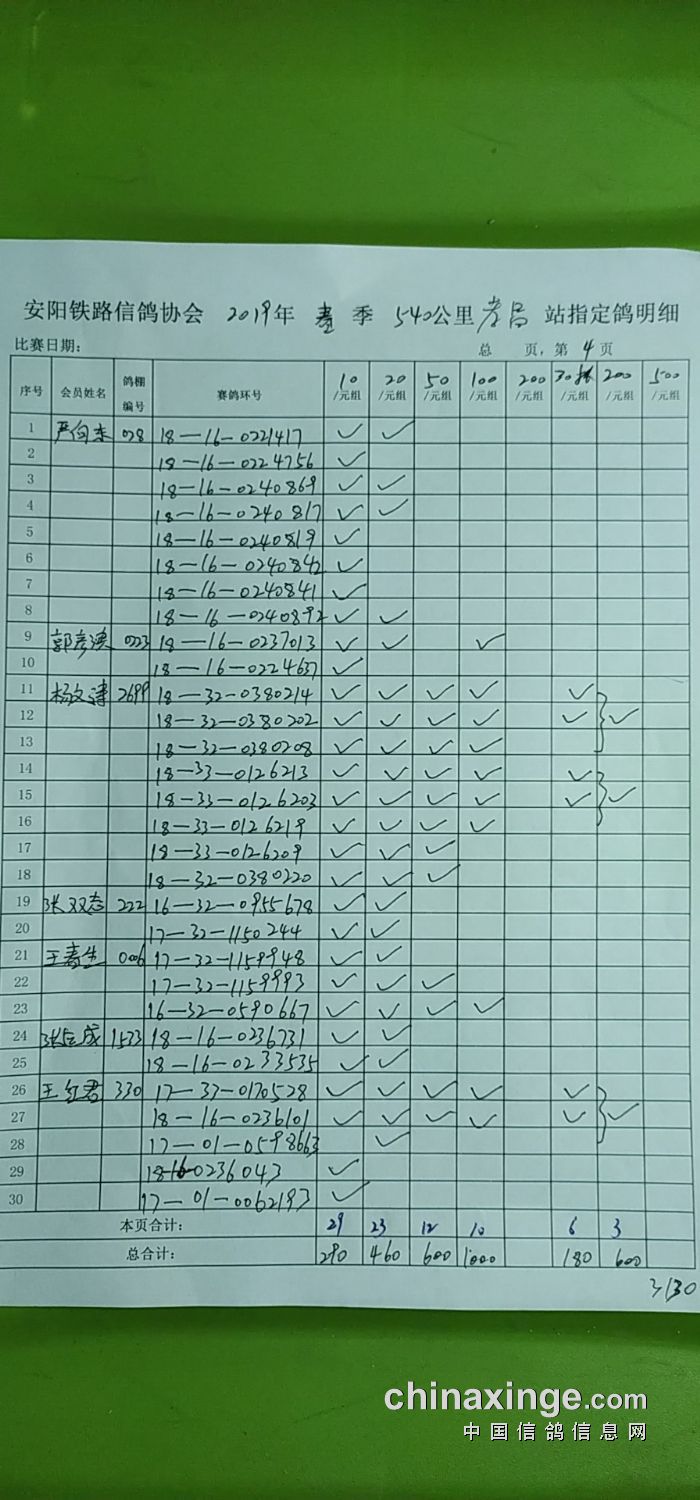 安阳铁路信鸽协会 2019年 春 季 540公里 站指定鸽明细
比赛日期： 总 页，第 4 页
序号 会员姓名 鸽棚编号 赛鸽环号 10/元组 20/元组 50/元组 100/元组 200/元组 30 /元组 200/元组 500/元组
1 028 18-16-0221417 ✓ ✓
2 18-16-0224756 ✓
3 18-16-0240869 ✓ ✓
4 18-16-0240817 ✓ ✓
5 18-16-0240819 ✓
6 18-16-0240842 ✓
7 18-16-0240841 ✓
8 18-16-0240892 ✓ ✓
9 0223 18-16-0237013 ✓ ✓ ✓
10 18-16-0224637 ✓
11 2699 18-32-0380214 ✓ ✓ ✓ ✓ ✓
12 18-32-0380202 ✓ ✓ ✓ ✓ ✓ ✓
13 18-32-0380208 ✓ ✓ ✓ ✓
14 18-33-0126213 ✓ ✓ ✓ ✓ ✓
15 18-33-0126203 ✓ ✓ ✓ ✓ ✓ ✓
16 18-33-0126219 ✓ ✓ ✓ ✓
17 18-33-0126209 ✓ ✓ ✓
18 18-32-0380220 ✓ ✓ ✓
19 张双志 222 16-32-0955678 ✓ ✓
20 17-32-1150244 ✓ ✓
21 王春生 006 17-32-1159948 ✓ ✓
22 17-32-1159993 ✓ ✓ ✓
23 16-32-0590667 ✓ ✓ ✓ ✓
24 1533 18-16-0236731 ✓ ✓
25 18-16-0233535 ✓ ✓
26 王红君 330 17-37-0170528 ✓ ✓ ✓ ✓ ✓
27 18-16-0236101 ✓ ✓ ✓ ✓ ✓ ✓
28 17-01-0598663 ✓
29 18-16-0236043 ✓
30 17-01-0062193 ✓
本页合计： 29 23 12 10 6 3
总合计： 290 460 600 1000 180 600
3130
chinaxinge.com
中国信鸽信息网